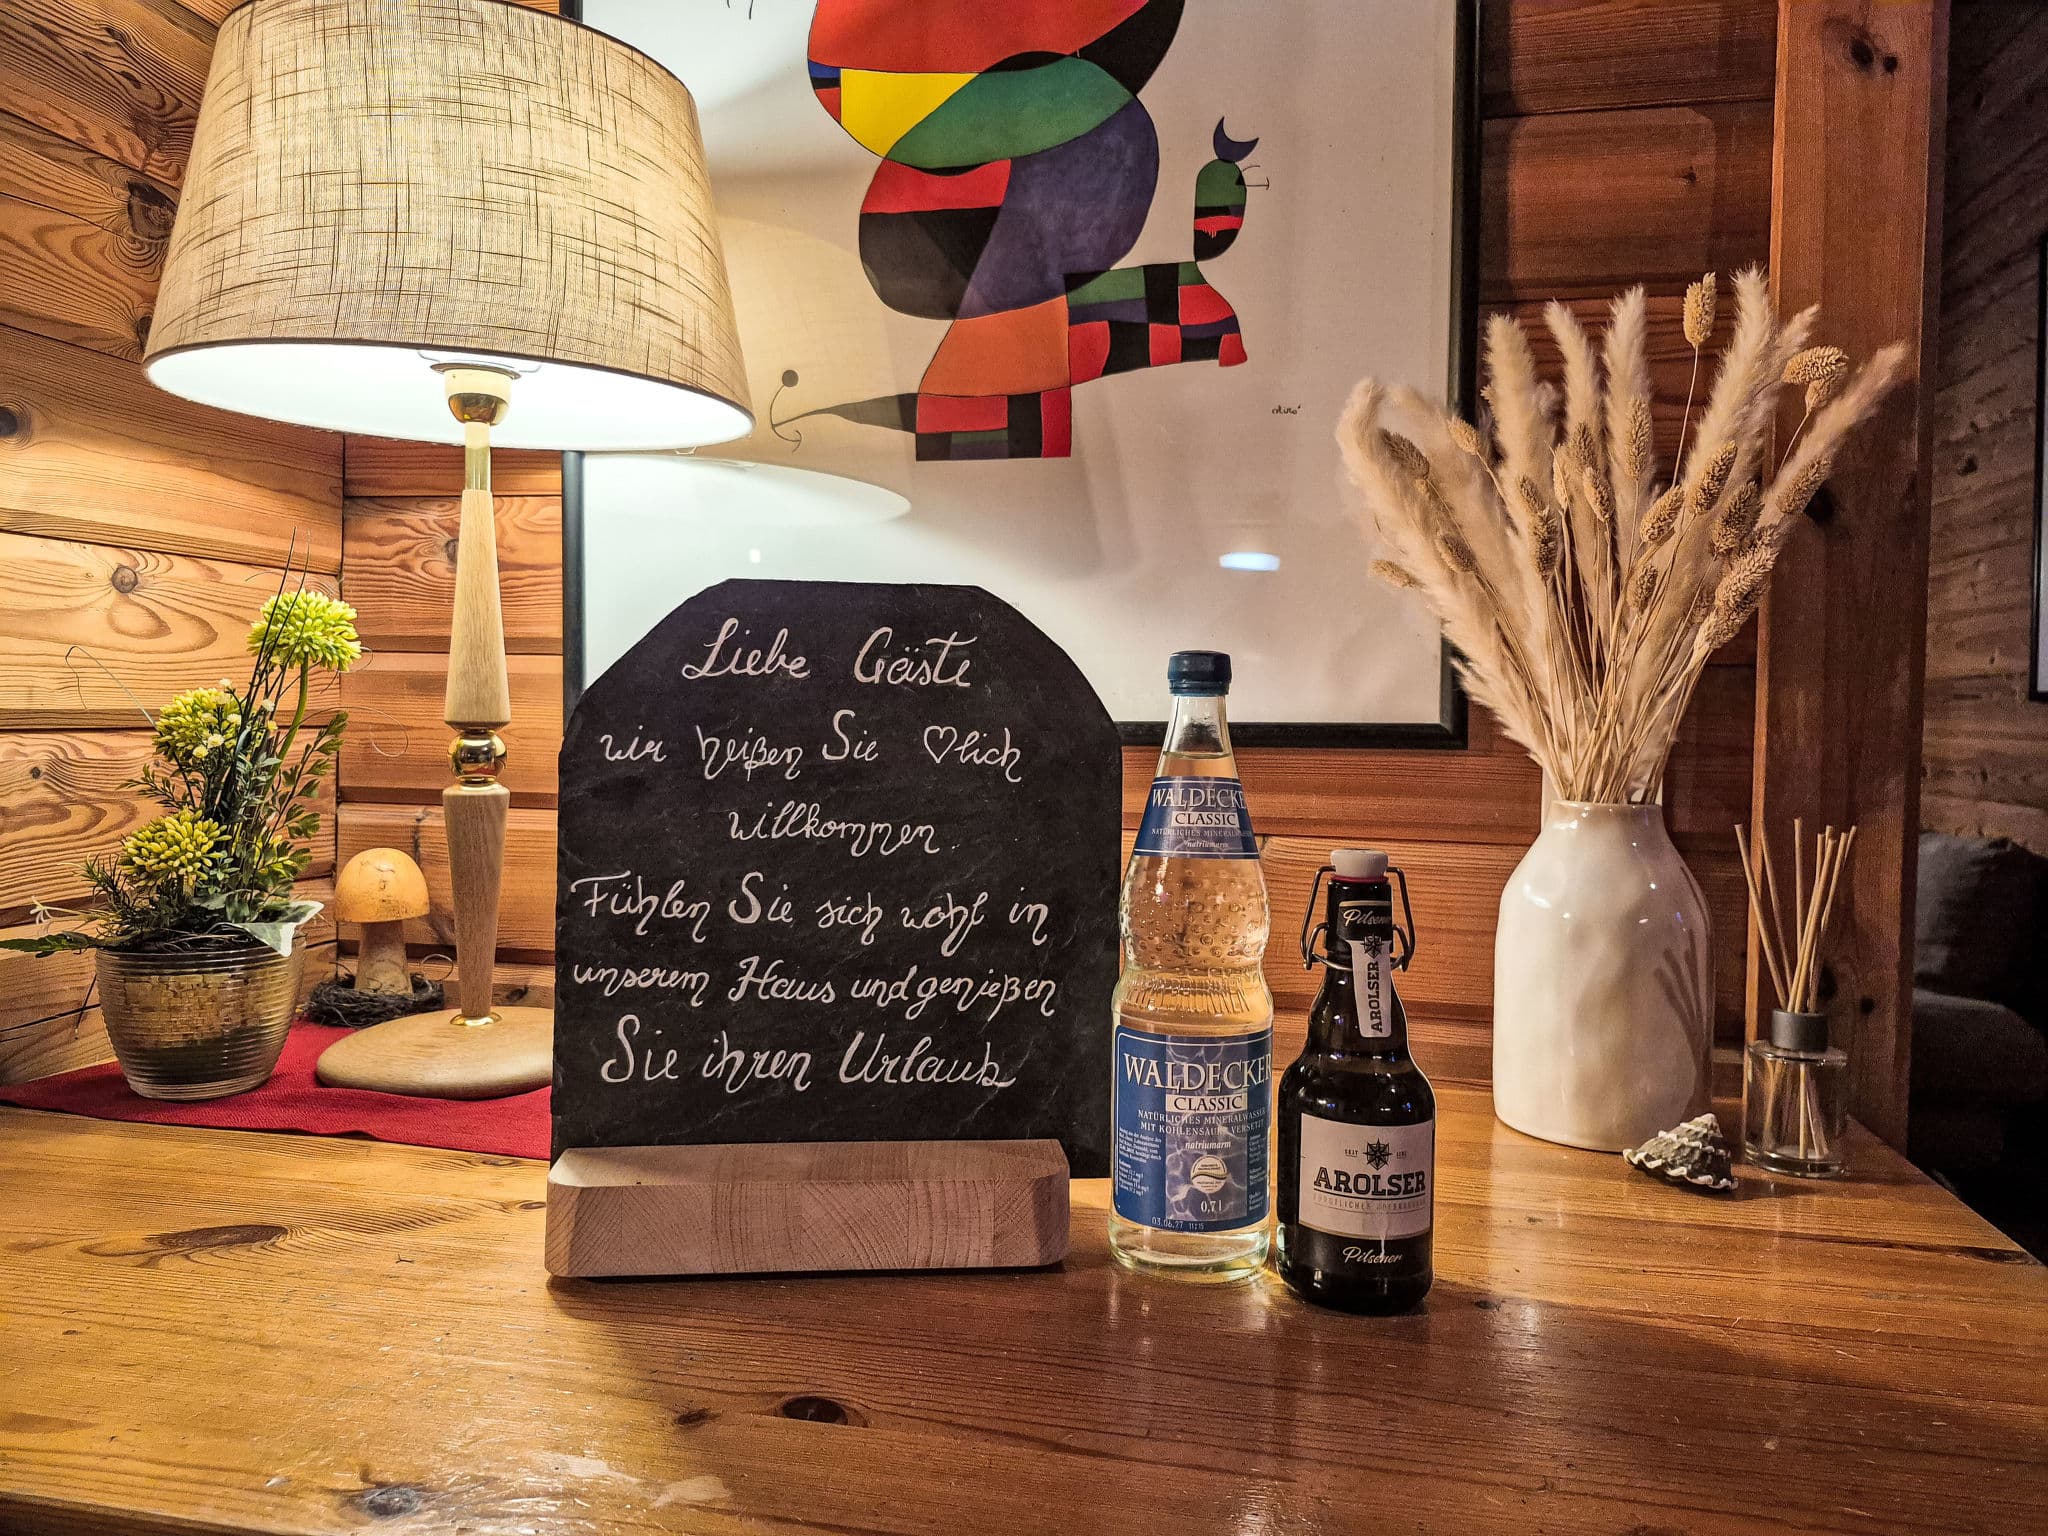 Miró
Liebe Gäste
wir heißen Sie ♡lich
willkommen.
Fühlen Sie sich wohl in
unserem Haus und genießen
Sie ihren Urlaub
WALDECKER
CLASSIC
NATÜRLICHES MINERALWASSER
natriumarm
WALDECKER
CLASSIC
NATÜRLICHES MINERALWASSER
MIT KOHLENSÄURE VERSETZT
natriumarm
0,7 l
03.06.27 11:15
Pilsener
AROLSER
SEIT
AROLSER
Pilsener